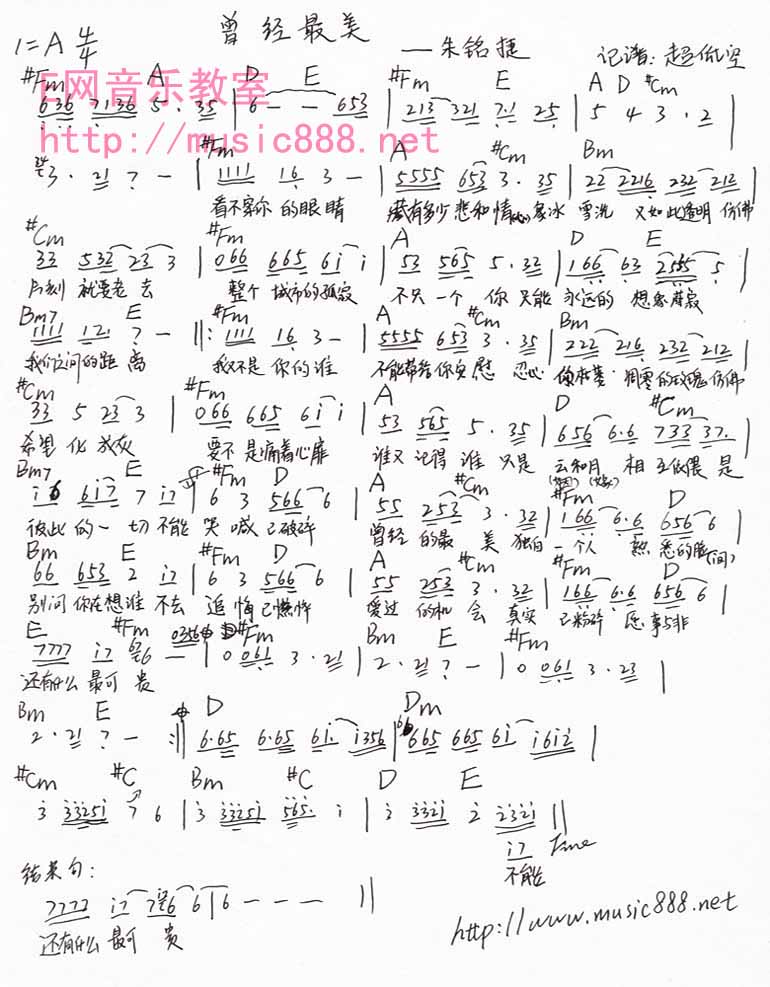 曾经最美
1=A 4/4
——朱铭捷
记谱:超低空
E网音乐教室
http://music888.net
#Fm A D E #Fm E A D #Cm
636 7136 5· 35 | 6 - - 653 | 213 321 7·1 25 | 5 4 3 · 2 |
#Fm A #Cm Bm
3· 21 7 - | 1111 16 3 - | 5555 653 3· 35 | 22 2216 232 212 |
看不穿你 的眼睛 藏有多少 悲和情 冰雪洗 又如此透明 仿佛
#Cm #Fm A D E
33 532 23 3 | 066 665 6i i | 53 565 5· 32 | 166 63 2555 5 |
片刻 就要老去 整个 城市的孤寂 不只一个 你 只能 永远的 想象
Bm7 E #Fm A #Cm Bm
1111 121 7 - ||: 1111 16 3 - | 5555 653 3· 35 | 222 216 232 212 |
我们之间的距离 我又不是 你的谁 不能带给你安慰 忍心 凋零的玫瑰 仿佛
#Cm #Fm A D #Cm
33 5 23 3 | 066 665 6i i | 53 565 5· 35 | 656 6·6 733 37· |
希望 化成灰 要不 是痛着心扉 谁又 记得 谁 只是 云和月 相互依偎 是
Bm7 E #Fm D A #Cm #Fm D
i6 6i7 7 i7 | 6 3 566 6 | 55 253 3· 32 | 166 6·6 656 6 |
彼此的一切 不能 哭喊 已破碎 曾经 的最 美 独自 一个人 熟 悉的脸
Bm E #Fm D A #Cm #Fm D
66 653 2 i7 | 6 3 566 6 | 55 253 3· 32 | 166 6·6 656 6 |
别问 你在想谁 不去 追悔 已憔悴 爱过 的机 会 真实 已粉碎 愿 事与非
E #Fm #Fm Bm E #Fm
7777 i7 6 - | 0 061 3· 21 | 2· 21 7 - | 0 061 3· 23 |
还有什么 最可 贵
Bm E D Dm
2· 21 7 - :|| 6·65 6·65 6i· i356 | 665 665 6i i6i2 |
#Cm #C Bm #C D E
3 3325i 7 6 | 3 3325i 565· i | 2 332i 2 232i ||
i7 Fine
不能
结束句:
7777 i7 766 6 | 6 - - - ||
还有什么 最可 贵
http://www.music888.net